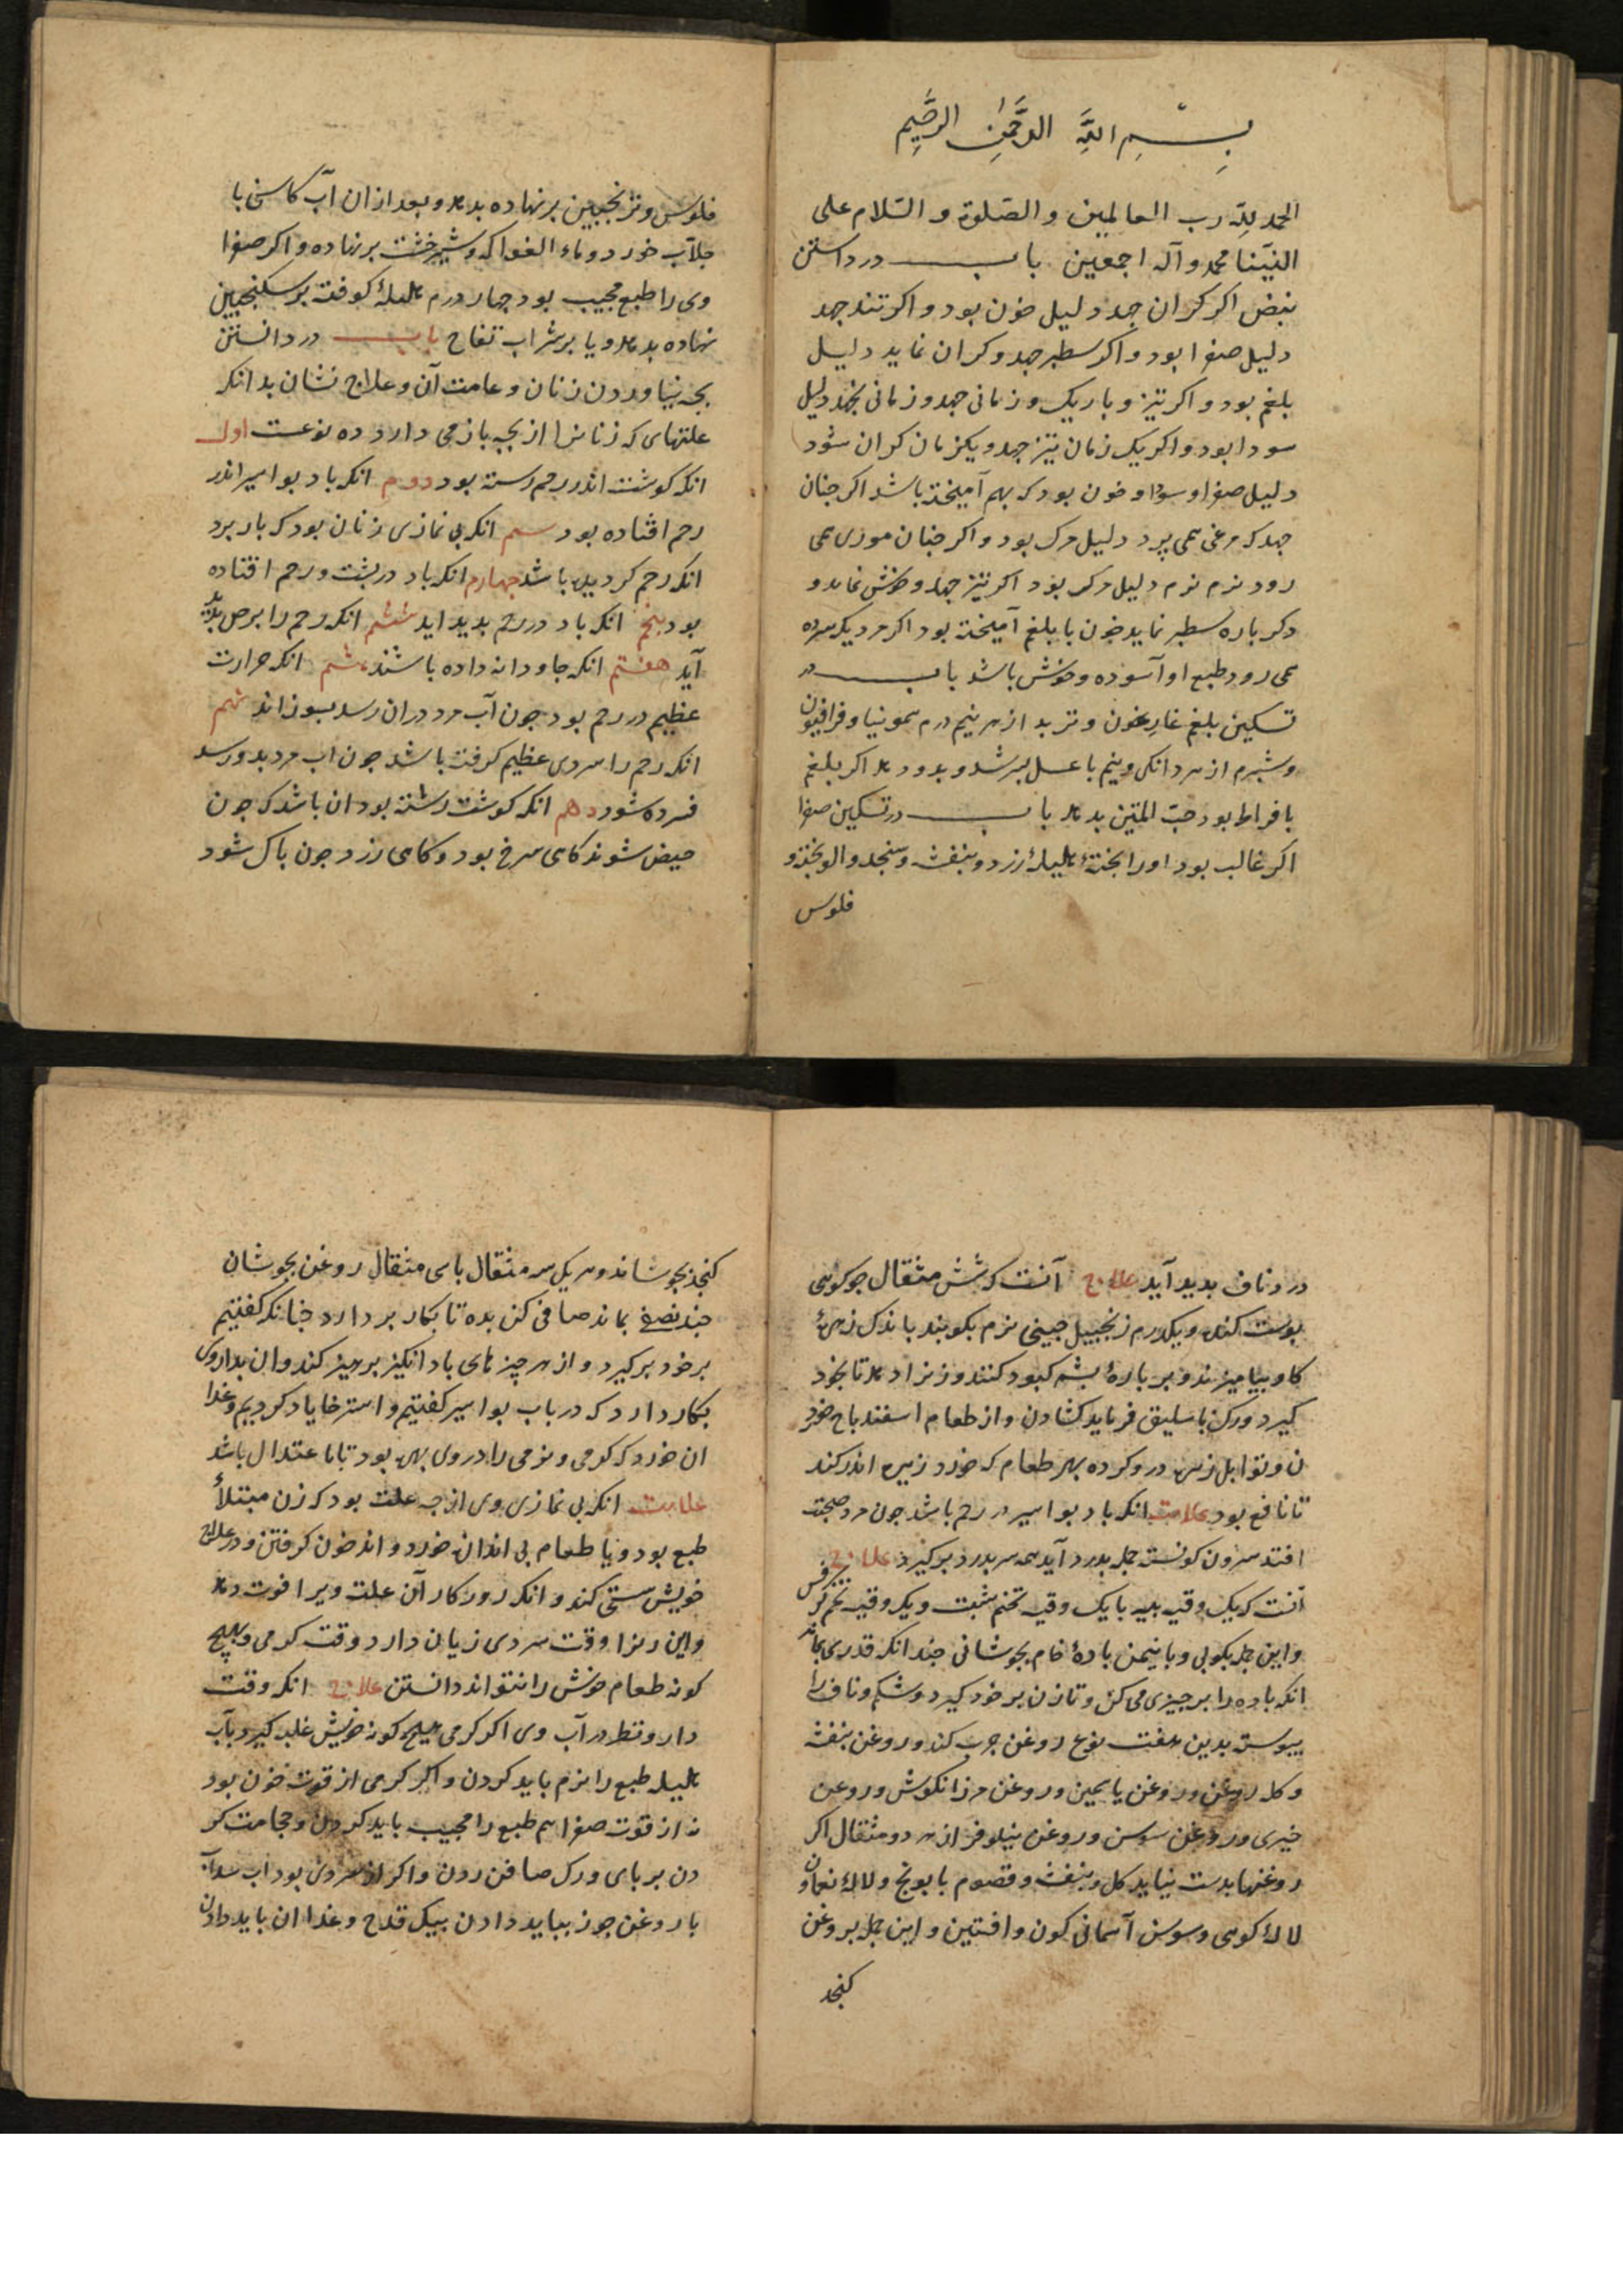 بِسْمِ اللّٰهِ الرَّحْمٰنِ الرَّحِيمِ
الحمد لِلّٰه رب العالمين والصّلوة والسّلام على
النبيّنا محمد وآله اجمعين باب در داستن
نبض اكر كران جهد دليل خون بود و اكر تند جهد
دليل صفرا بود و اكر سطبر جهد و كران نمايد دليل
بلغم بود و اكر تيز و باريك و زمانى جهد و زمانى نجهد دليل
سودا بود و اكر يك زمان تيز جهد و يكزمان كران شود
دليل صفرا و سودا و خون بود كه بهم آميخته باشد اكر جنان
جهد كه مرغى همى پرد دليل مرك بود و اكر جنان مورى همى
رود نرم نرم دليل مرك بود اكر تيز جهد و خوش نمايد و
دكر باره سطبر نمايد خون با بلغم آميخته بود اكر مرد يكسره
همى رود طبع او آسوده و خوش باشد باب در
تسكين بلغم غاريغون و تربد از هر نيم درم سمونيا و فرافيون
و شبرم از هر دانكى و نيم با عسل بسرشد و بدو دهد اكر بلغم
بافراط بود حبّ المتين بدهد باب در تسكين صفرا
اكر غالب بود او را بختهٔ هليلهٔ زرد و بنفشه و سنجد و الو بختن و
فلوس
فلوس و ترنجبين بر نهاده بدهد و بعد از ان آب كاسنى با
جلاّب خورد و ماء الفواكه و شيرخشت بر نهاده و اكر صفرا
وى را طبع مجيب بود جهار درم هليلهٔ كوفته بر سكنجبين
نهاده بدهد و يا بر شراب تفاح باب در دانستن
بجه نياوردن زنان و عامت آن و علاج نشان بدانكه
علتهاى كه زنانرا از بجه باز مى دارد ده نوعست اول
انكه كوشت اندر رحم رسته بود دوم انكه باد بواسير اندر
رحم افتاده بود سيم انكه بى نمازى زنان بود كه باز برد
انكه رحم كرديده باشد جهارم انكه باد در بشت و رحم افتاده
بود بنجم انكه باد در رحم بديد ايد ششم انكه رحم را برص بديد
آيد هفتم انكه جاودانه داده باشند هشتم انكه حرارت
عظيم در رحم بود جون آب مرد دران رسد بسوزاند نهم
انكه رحم را سردى عظيم كرفته باشد جون اب مرد بدو رسد
فسرده شود دهم انكه كوشت رشته بود ان باشد كه جون
حيض شوند كاهى سرخ بود و كاهى زرد جون پاك شود
درد ناف بديد آيد علاج آنست كه شش مثقال جو كوهى
پوست كنده و يكدرم زنجبيل جينى نرم بكوبند با اندك زهرهٔ
كاو بياميزند و بر بارهٔ بشم كبود كنند و زنرا دهد تا بخود
كيرد و رك باسليق فرمايد كشادن و از طعام اسفندباج خورد
ن و توابل زيره درو كرده بهر طعام كه خورد زيره اندر كند
تا نافع بود علامت انكه باد بواسير در رحم باشد جون مرد صحبت
افتد سرون كونسته جمله بدرد آيد همه سر بدرد بركيرد علاج
آنست كه يك وقيه بليه با يك وقيه تخم شبت و يك وقيه تخم كرفس
و اين جمله بكوبى و با نيمن بادهٔ خام بجوشانى جندانكه قدرى بماند
انكه باده را بر جيزى مى كن و تا زن بر خود كيرد و شكم و ناف را
پيوسته بدين هفت نوع روغن جرب كند و روغن بنفشه
و كل روغن و روغن ياسمين و روغن مرزانكوش و روغن
خيرى و روغن سوسن و روغن نيلوفر از هر دو مثقال اكر
روغنها بدست نيايد كل و بنفشه و قصوم بابونج و لالهٔ نعمان و
لالهٔ كوهى و سوسن آسمانى كون و افسنتين و اين جمله بروغن
كنجد
كنجد بجوشاند و هر يكى سه مثقال با سى مثقال روغن بجوشان
جند نصفى بماند صافى كن بده تا بكار بر دارد جنانكه كفتيم
بر خود بركيرد و از هر جيز هاى باد انكيز برهيز كند و ان بداروى
بكار دارد كه در باب بواسير كفتيم و استرخا ياد كرديم و غدا
ان خورد كه كرمى و نرمى را در وى بهره بود تا با عتدال باشد
علامت انكه بى نمازى وى از جه علت بود كه زن مبتلأ
طبع بود و يا طعام بى اندازه خورد و اند خون كرفتن و در علاج
خويش سستى كند و انكه روزكار آن علت ويرا قوت دهد
و اين زنرا وقت سردى زيان دارد وقت كرمى و بهيج
كونه طعام خوش را نتواند دانستن علاج انكه وقت
دارو نظر در آب وى اكر كرمى هيج كونه خويش غلبه كيرد بآب
هليله طبع را نرم بايد كردن و اكر كرمى از قوت خون بود
نه از قوت صفرا هم طبع را مجيب بايد كردن و حجامت كر
دن بر باى و رك صافن زدن و اكر از سردى بود اب سداب
با روغن جوز ببايد دادن بيك قدح و غدا ان بايد دادن